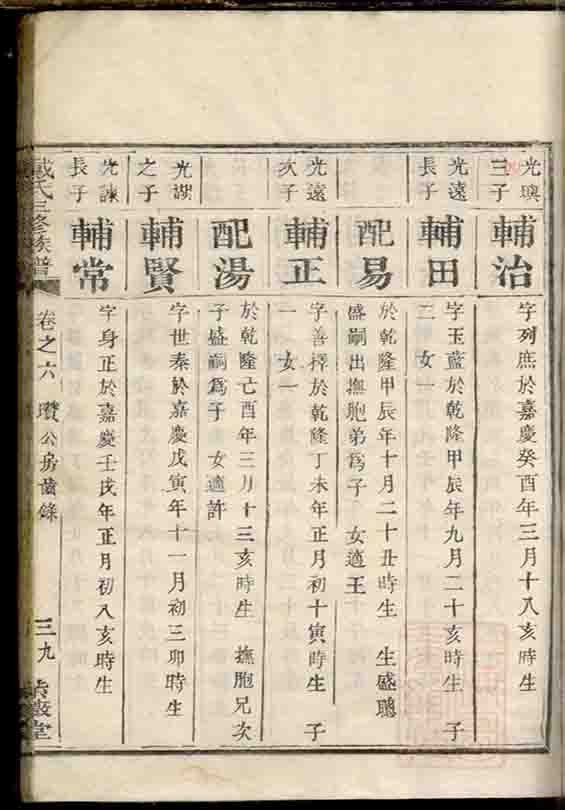 光璵
三子
輔治
字列庶於嘉慶癸酉年三月十八亥時生
光遠
長子
輔田
字玉藍於乾隆甲辰年九月二十亥時生 子
二 女一
配易
於乾隆甲辰年十月二十丑時生 生盛聰
盛嗣出撫胞弟為子 女適王
光遠
次子
輔正
字善擇於乾隆丁未年正月初十寅時生 子
一 女一
配湯
於乾隆己酉年三月十三亥時生 撫胞兄次
子盛嗣為子 女適許
光謨
之子
輔賢
字世泰於嘉慶戊寅年十一月初三卯時生
光諫
長子
輔常
字身正於嘉慶壬戌年正月初八亥時生
戴氏三修族譜
卷之六 瓚公房齒錄
三九
堂